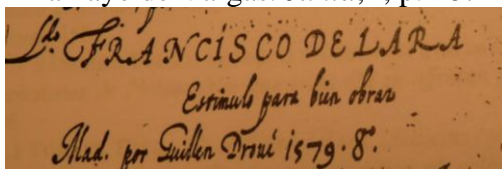 L.do FRANCISCO DE LARA
Estimulo para bien obrar
Mad. por Guillen Droui 1579. 8º.